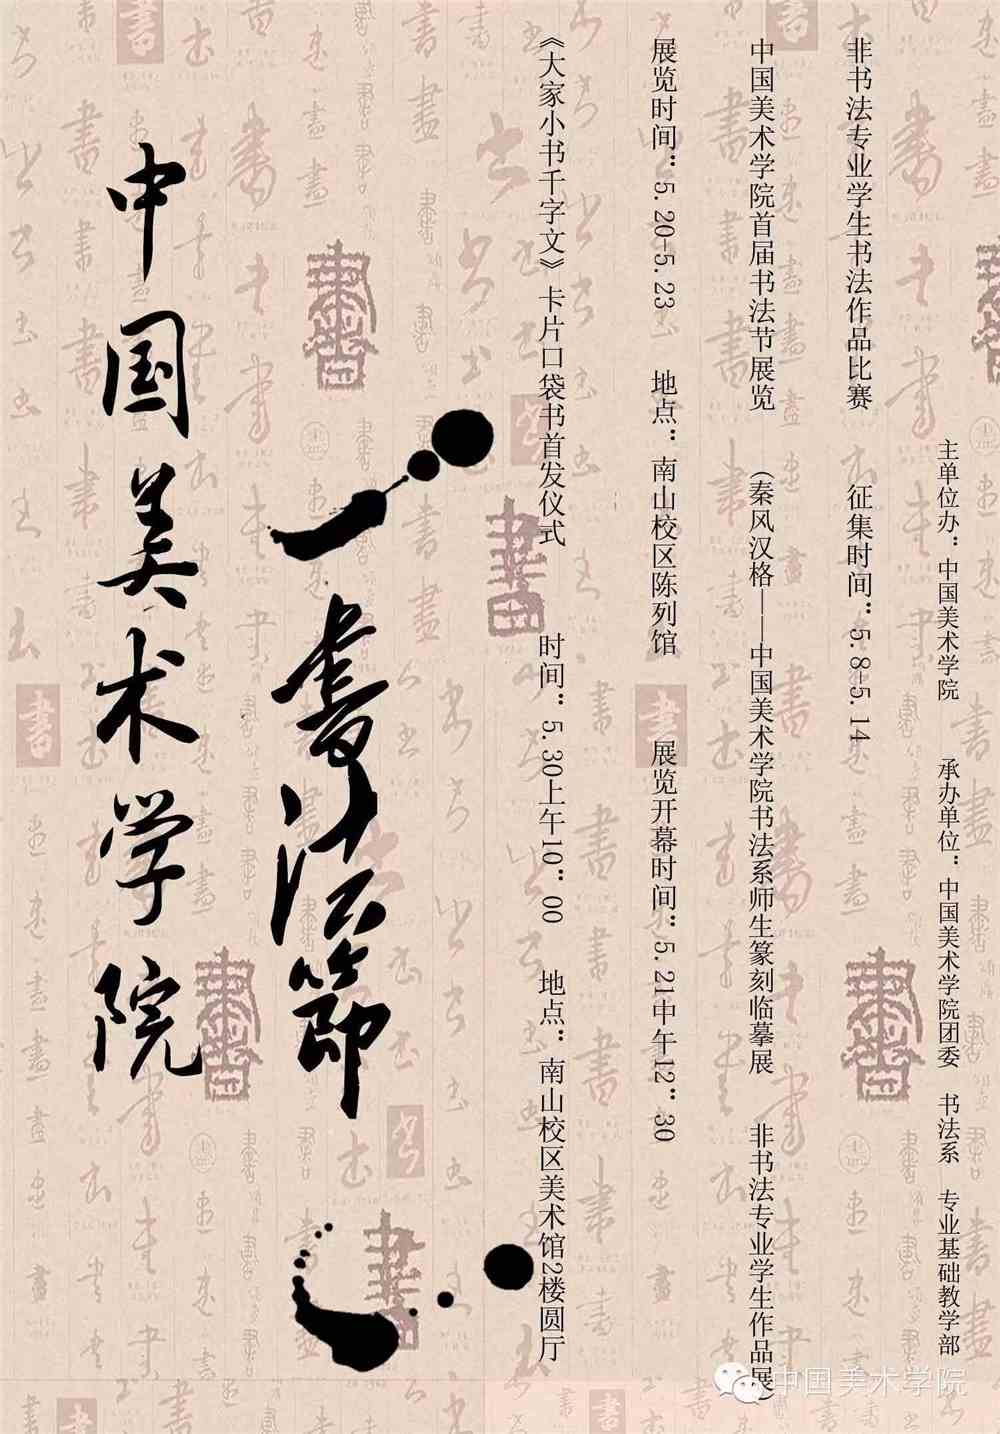 主单位办：中国美术学院 承办单位：中国美术学院团委 书法系 专业基础教学部
非书法专业学生书法作品比赛 征集时间：5.8-5.14
中国美术学院首届书法节展览 （秦风汉格——中国美术学院书法系师生篆刻临摹展 非书法专业学生作品展）
展览时间：5.20-5.23 地点：南山校区陈列馆 展览开幕时间：5.21中午12：30
《大家小书千字文》卡片口袋书首发仪式 时间：5.30上午10：00 地点：南山校区美术馆2楼圆厅
書法節
中国美术学院
中国美术学院